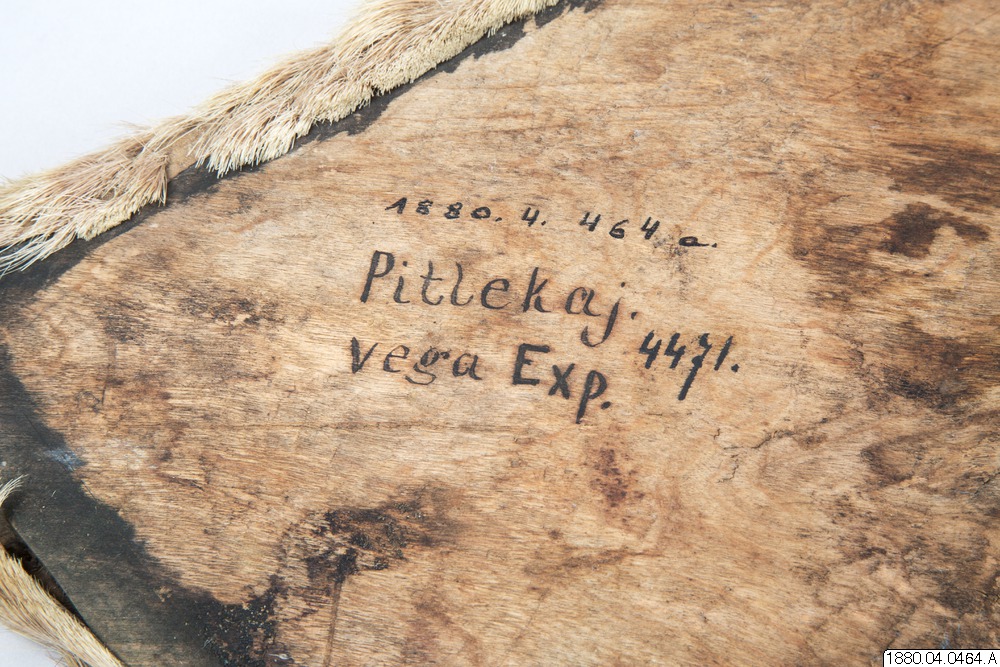 1880. 4. 464 a.
Pitlekaj. 4471.
vega Exp.
1880.04.0464.A